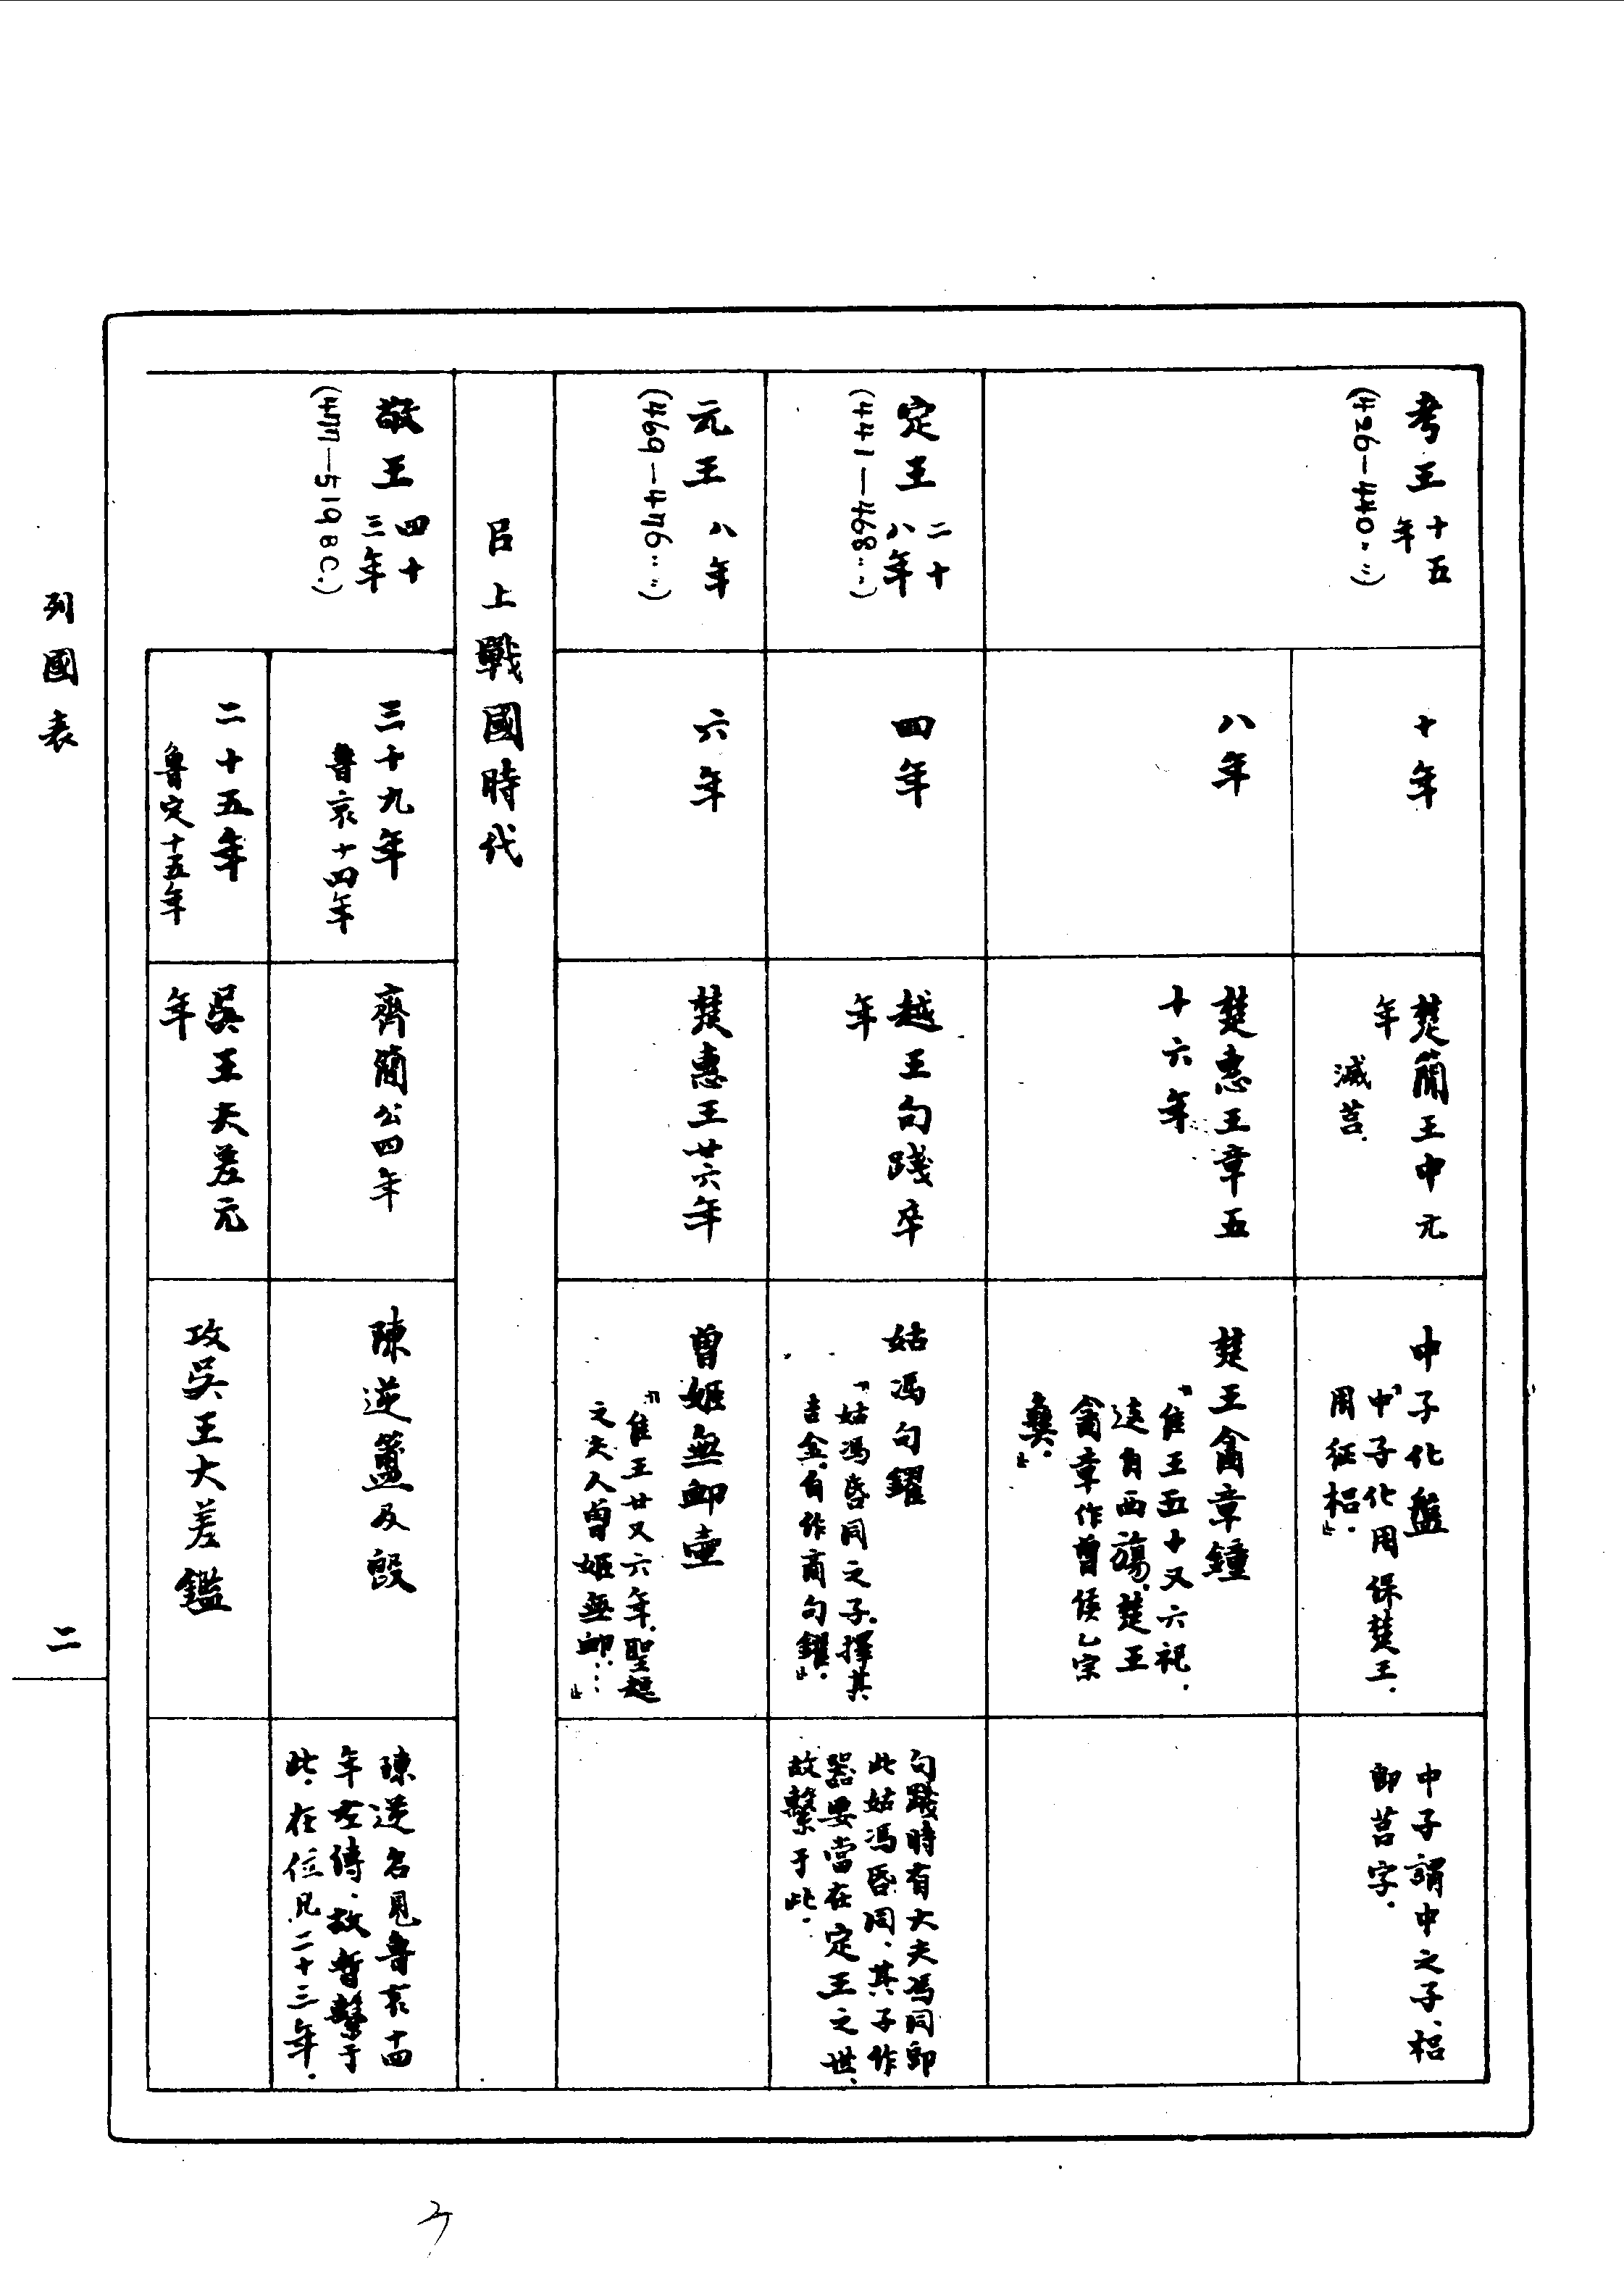 考王十五
年
(426—440…)
十年
楚簡王中元
年
滅莒.
中子化盤
「中子化用保楚王.
用征梠.」
中子謂中之子、梠
即莒字.
八年
楚惠王章五
十六年
楚王酓章鐘
「隹王五十又六祀.
返自西𣄴.楚王
酓章作曾侯乙宗
彝.」
定王二十
八年
(441—468…)
四年
越王句踐卒
年
姑馮句鑃
「姑馮昏同之子.擇其
吉金.自作商句鑃.」
句踐時有大夫馮同即
此姑馮昏同、其子作
器要當在定王之世、
故繫于此.
元王八年
(469—476……)
六年
楚惠王廿六年
曾姬無卹壺
「隹王廿又六年.聖趄
之夫人曾姬無卹…」
㠯上戰國時代
敬王四十
三年
(477—519 B.C.)
三十九年
魯哀十四年
齊簡公四年
陳逆簠及𣪘
陳逆名見魯哀十四
年左傳、故暫繫于
此.在位凡二十三年.
二十五年
魯定十五年
吳王夫差元
年
攻吳王大差鑑
列國表
二